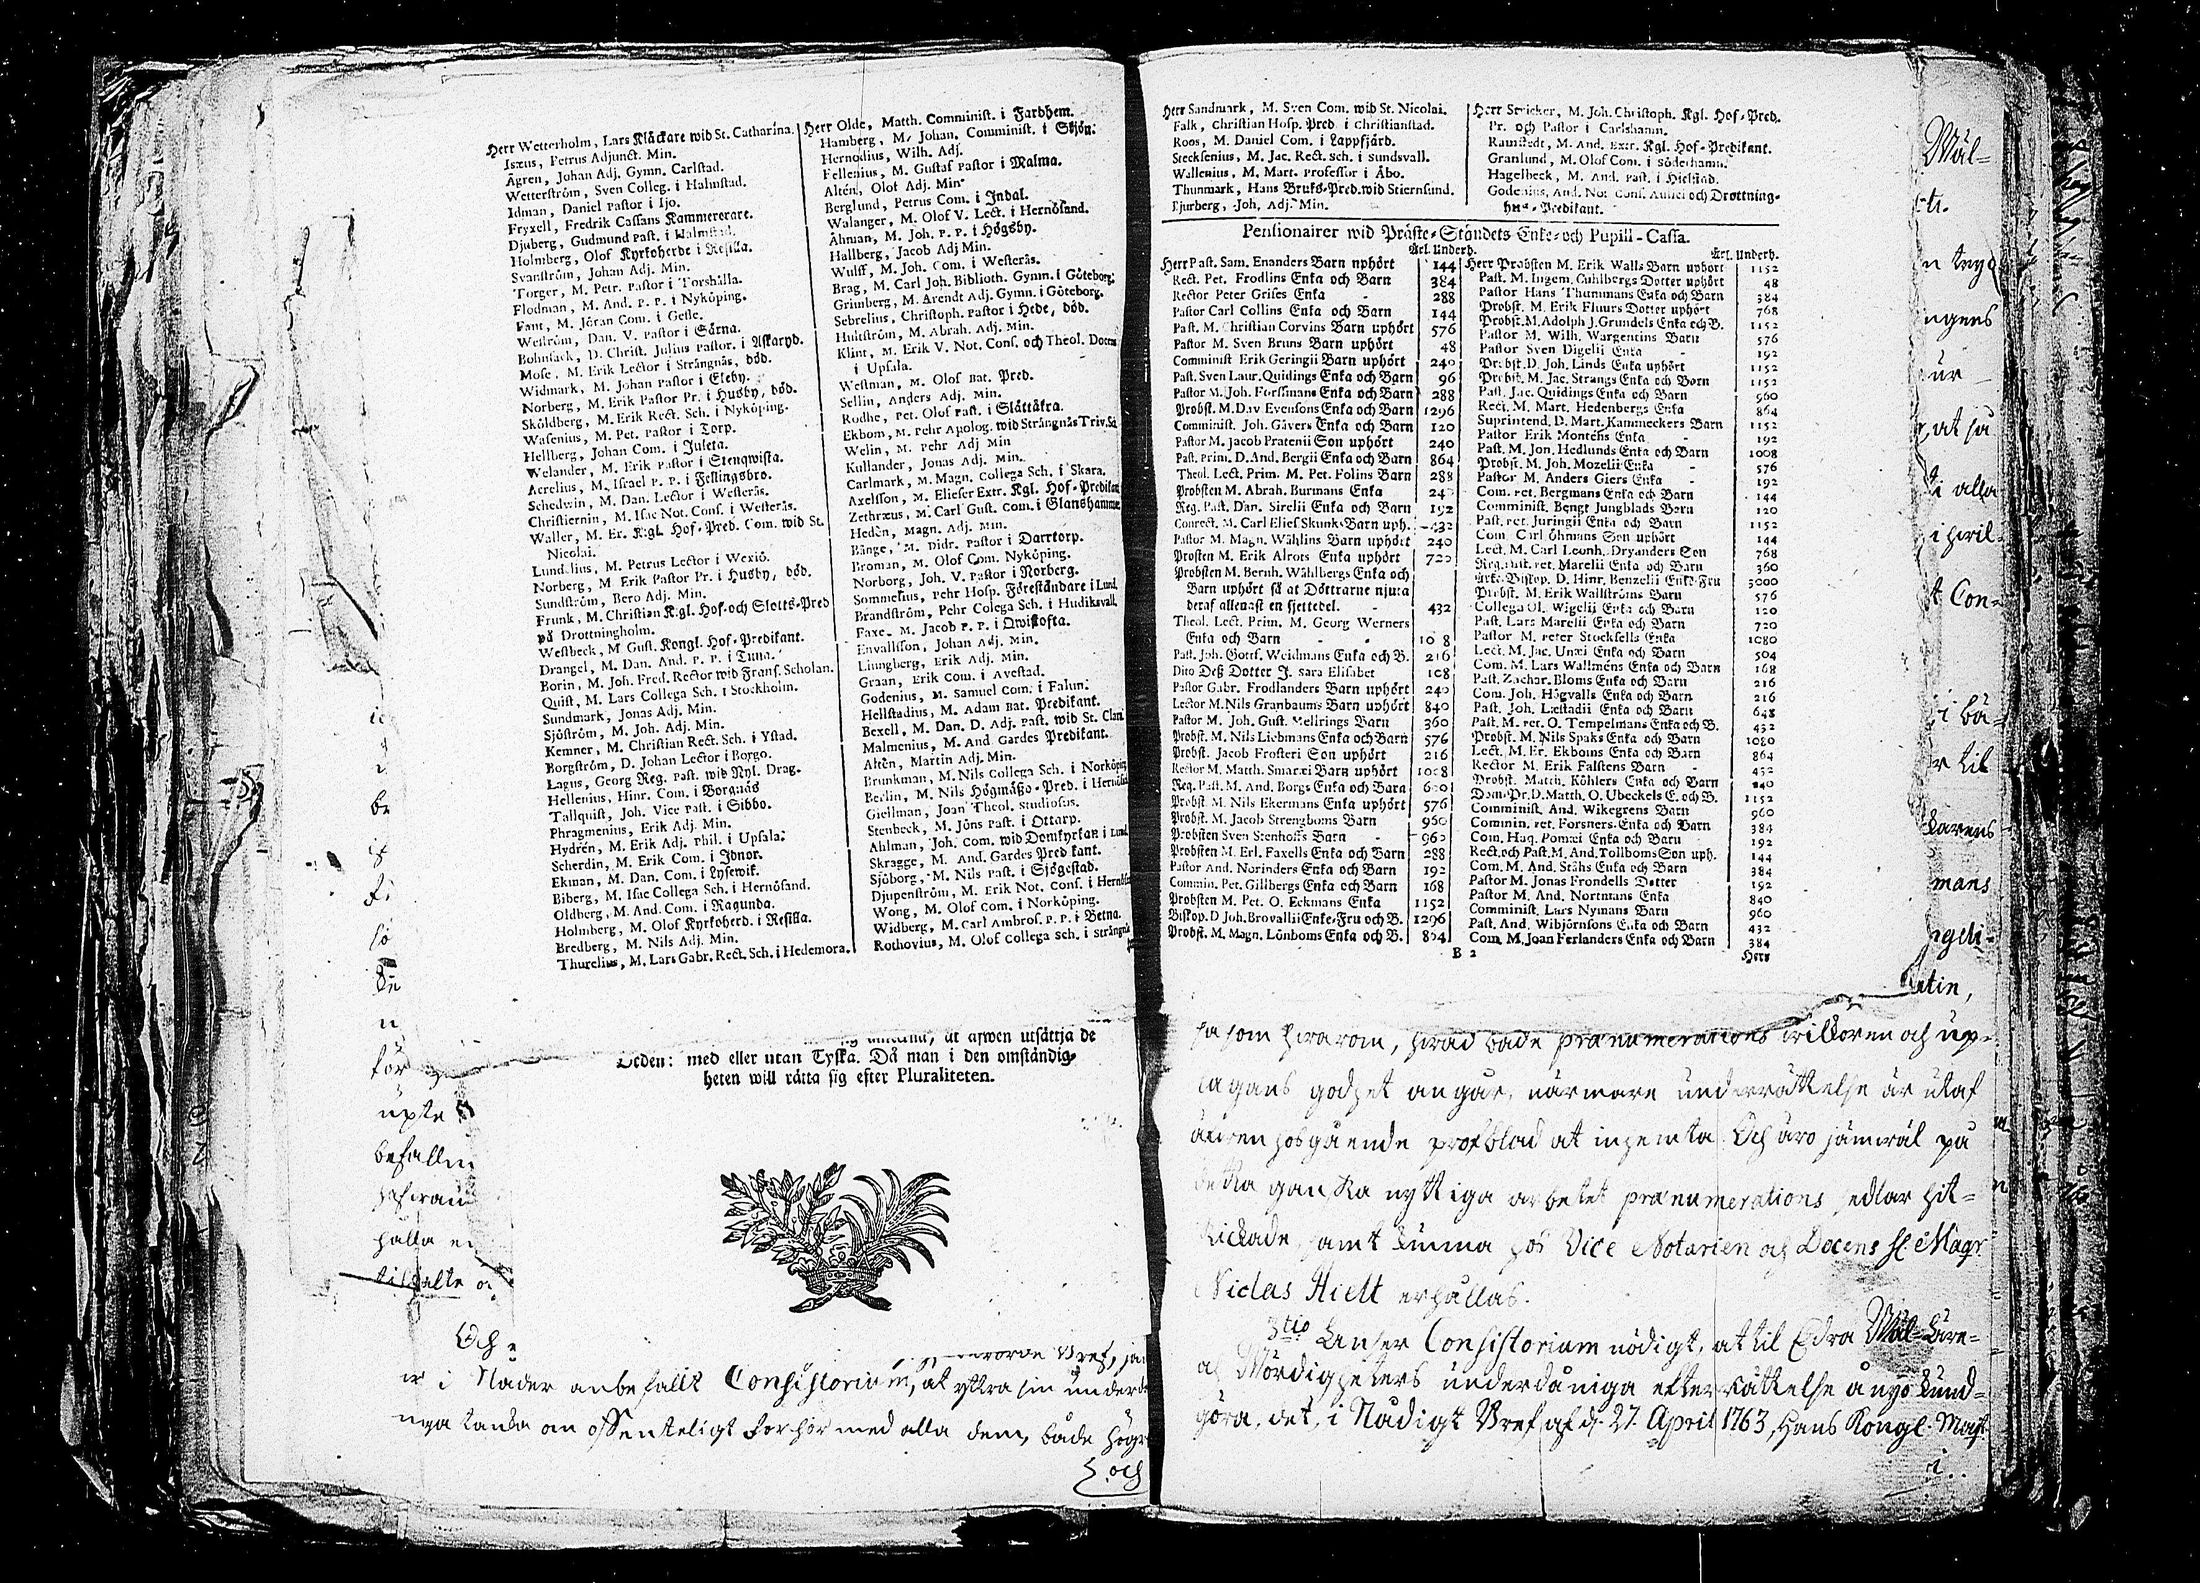 Herr Wetterholm, Lars Klåckare wid St. Catharina.
Isæus, Petrus Adjunct. Min.
Ågren, Johan Adj. Gymn. Carlstad.
Wetterström, Sven Colleg. i Halmstad.
Idman, Daniel Pastor i Ijo.
Fryxell, Fredrik Cassans Kammererare.
Djuberg, Gudmund Past. i Halmstad.
Holmberg, Olof Kyrkoherde i Resilla.
Svanström, Johan Adj. Min.
Torger, M. Petr. Pastor i Torshålla.
Flodman, M. And. P. P. i Nyköping.
Fant, M. Jöran Com. i Gefle.
Weström, Dan. V. Pastor i Särna.
Bohnsack, D. Christ. Julius Pastor. i Askaryd.
Mose, M. Erik Lector i Strängnäs, död.
Widmark, M. Johan Pastor i Eleby.
Norberg, M. Erik Pastor Pr. i Husby, död.
Sköldberg, M. Erik Rect. Sch. i Nyköping.
Wasenius, M. Pet. Pastor i Torp.
Hellberg, Johan Com. i Juleta.
Welander, M. Erik Pastor i Stenqwista.
Aerelius, M. Israel P. P. i Fellingsbro.
Schedwin, M. Dan. Lector i Westerås.
Christiernin, M. Isac Not. Cons. i Westerås.
Waller, M. Er. Kgl. Hof-Pred. Com. wid St.
Nicolai.
Lundelius, M. Petrus Lector i Wexiö.
Norberg, M Erik Pastor Pr. i Husby, död.
Sundström, Bero Adj. Min.
Frunk, M. Christian Kgl. Hof-och Slotts-Pred
på Drottningholm.
Westbeck, M Gust. Kongl. Hof-Predikant.
Drangel, M. Dan. And. P. P. i Tuna.
Borin, M. Joh. Fred. Rector wid Frans. Scholan.
Quist, M. Lars Collega Sch. i Stockholm.
Sundmark, Jonas Adj. Min.
Sjöström, M. Joh. Adj. Min.
Kemner, M. Christian Rect. Sch. i Ystad.
Borgström, D. Johan Lector i Borgo.
Lagus, Georg Reg. Past. wid Nyl. Drag.
Hellenius, Hinr. Com. i Borgnäs
Tallquist, Joh. Vice Past. i Sibbo.
Phragmenius, Erik Adj. Min.
Hydrén, M. Erik Adj. Phil. i Upsala.
Scherdin, M. Erik Com. i Idnor.
Ekman, M. Dan. Com. i Lysewik.
Biberg, M. Isac Collega Sch. i Hernösand.
Oldberg, M. And. Com. i Ragunda.
Holmberg, M. Olof Kyrkoherd. i Resilla.
Bredberg, M. Nils Adj. Min.
Thurelius, M. Lars Gabr. Rect. Sch. i Hedemora.
Herr Olde, Matth. Comminist. i Fardhem.
Hamberg, M. Johan. Comminist. i Skjön.
Hernodius, Wilh. Adj.
Fellenius, M. Gustaf Pastor i Malma.
Altén, Olof Adj. Min.
Berglund, Petrus Com. i Indal.
Walanger, M. Olof V. Lect. i Hernösand.
Åhman, M. Joh. P. P. i Högsby.
Hallberg, Jacob Adj Min.
Wulff, M. Joh. Com. i Westerås.
Brag, M. Carl Joh. Biblioth. Gymn. i Göteborg.
Grimberg, M. Arendt Adj. Gymn. i Göteborg.
Sebrelius, Christoph. Pastor i Hede, död.
Hultström, M. Abrah. Adj. Min.
Klint, M. Erik V. Not. Cons. och Theol. Docens
i Upsala.
Westman, M. Olof Bat. Pred.
Sellin, Anders Adj. Min.
Rodhe, Pet. Olof Past. i Slättåkra.
Ekbom, M. Pehr Apolog. wid Strängnäs Triv. Sch.
Welin, M. Pehr Adj Min
Kullander, Jonas Adj. Min.
Carlmark, M. Magn. Collega Sch. i Skara.
Axelsson, M. Elieser Extr. Kgl. Hof-Predikan
Zethræus, M. Carl Gust. Com. i Glanshammar
Hedén, Magn. Adj. Min.
Bånge, M. Didr. Pastor i Darrtorp.
Broman, M. Olof Com. Nyköping.
Norborg, Joh. V. Pastor i Norberg.
Sommelius, Pehr Hosp. Föreståndare i Lund.
Brandström, Pehr Colega Sch. i Hudiksvall.
Faxe, M. Jacob P. P. i Qwistofta.
Envallsson, Johan Adj. Min.
Liungberg, Erik Adj. Min.
Graan, Erik Com. i Avestad.
Godenius, M. Samuel Com. i Falun.
Hellstadius, M. Adam Bat. Predikant.
Bexell, M. Dan. D. Adj. Past. wid St. Clan.
Malmenius, M. And Gardes Predikant.
Altén, Martin Adj. Min.
Brunkman, M. Nils Collega Sch. i Norköping
Berlin, M. Nils Högmässo-Pred. i Hernösa
Giellman, Joan Theol. Studiosus.
Stenbeck, M. Jöns Past. i Ottarp.
Ahlman, Joh. Com. wid Domkyrkan i Lund.
Skragge, M. And. Gardes Pred kant.
Sjöborg, M. Nils Past. i Sjögestad.
Djupenström, M. Erik Not. Cons. i Hernösa
Wong, M. Olof Com. i Norköping.
Widberg, M. Carl Ambros. P. P. i Betna.
Rothovius, M. Olof Collega Sch. i Strängnäs
at äfwen utsättja de
Orden: med eller utan Tyska. Då man i den omständig-
heten will rätta sig efter Pluraliteten.
be
så
för
upte
befallni
hålla
Och
Bref,
w i Nåder anbefallt Consistorium, at yttra sin underdå
niga tanka om offenteligt förhör med alla dem, både högre
och
Herr Sandmark, M. Sven Com. wid St. Nicolai.
Falk, Christian Hosp. Pred. i Christianstad.
Roos, M. Daniel Com. i Lappfjärd.
Stecksenius, M. Jac. Rect. Sch. i Sundsvall.
Wallenius, M. Mart. Professor i Åbo.
Thunmark, Hans Bruks-Pred. wid Stiernsund.
Djurberg, Joh. Adj. Min.
Herr Stricker, M. Joh. Christoph. Kgl. Hof-Pred.
Pr. och Pastor i Carlshamn.
Raunstedt, M. And. Extr. Kgl. Hof-Predikant.
Granlund, M. Olof Com. i Söderhamn.
Hagelbeck, M. And. Past. i Hielstad.
Godenius, And. Not Cons. Aulici och Drottning-
hus-Predikant.
Pensionairer wid Präste-Ståndets Enke-och Pupill-Cassa.
Årl. Underh.
Herr Past. Sam. Enanders Barn uphört 144
Rect. Pet. Frodlins Enka och Barn 384
Rector Peter Grises Enka - 288
Pastor Carl Collins Enka och Barn 144
Past. M. Christian Corvins Barn uphört 576
Pastor M. Sven Bruns Barn uphört 48
Comminist Erik Geringii Barn uphört 240
Past. Sven Laur. Quidings Enka och Barn 96
Pastor M. Joh. Forssmans Enka och Barn 288
Probst. M. Dav Evensons Enka och Barn 1296
Comminist. Joh. Gåvers Enka och Barn 120
Pastor M. Jacob Pratenii Son uphört 240
Past. Prim. D. And. Bergii Enka och Barn 864
Theol. Lect. Prim. M. Pet. Folins Barn 288
Probsten M. Abrah. Burmans Enka 240
Reg. Past. Dan. Sirelii Enka och Barn 192
Conrect. M. Carl Elies Skunks Barn uph. 432
Pastor M. Magn. Wåhlins Barn uphört 240
Prosten M. Erik Alrots Enka uphört 720
Probsten M. Bernh. Wåhlbergs Enka och
Barn uphört så at Döttrarne njuta
deraf allenast en sjettedel. - 432
Theol. Lect. Prim. M. Georg Werners
Enka och Barn - - 1008
Past. Joh. Gottf. Weidmans Enka och B. 216
Dito Deß Dotter J. Sara Elisabet 108
Pastor Gabr. Frodlanders Barn uphört 240
Lector M. Nils Granbaums Barn uphört 840
Pastor M. Joh. Gust. Mellrings Barn 360
Probst. M. Nils Liebmans Enka och Barn 576
Probst. Jacob Frosteri Son uphört 216
Rector M. Matth. Smaræi Barn uphört 1008
Reg. Past. M. And. Borgs Enka och Barn 600
Probst. M. Nils Ekermans Enka uphört 576
Probst. M. Jacob Strengboms Barn 960
Probsten Sven Stenhoffs Barn - 960
Probsten M. Erl. Faxells Enka och Barn 288
Pastor And. Norinders Enka och Barn 192
Commin. Pet. Gillbergs Enka och Barn 168
Probsten M. Pet. O. Eekmans Enka 1152
Biskop. D Joh. Brovallii Enke-Fru och B. 1296
Probst. M. Magn. Lönboms Enka och B. 864
Årl. Underh.
Herr Probsten M. Erik Walls Barn uphört 1152
Past. M. Ingem. Guhlbergs Dotter uphört 48
Pastor Hans Thummans Enka och Barn 384
Probst. M. Erik Fluurs Dotter uphört 768
Probst. M. Adolph J. Grundels Enka och B. 1152
Pastor M. Wilh. Wargentins Barn 576
Pastor Sven Digelii Enka - 192
Probst. D. Joh. Linds Enka uphört 1152
Probst. M. Jac. Strangs Enka och Barn 1152
Past. Jac. Quidings Enka och Barn 960
Rect. M. Mart. Hedenbergs Enka 864
Suprintend. D. Mart. Kammeckers Barn 1152
Pastor Erik Monténs Enka - 192
Past. M. Jon. Hedlunds Enka och Barn 1008
Probst. M. Joh. Mozelii Enka - 576
Pastor M. Anders Giers Enka - 192
Com. Pet. Bergmans Enka och Barn 144
Comminist. Bengt Jungblads Barn 120
Past. Pet. Juringii Enka och Barn 1152
Com. Carl Öhmans Son uphört 144
Lect. M. Carl Leonh. Dryanders Son 768
Reg. Past. Pet. Marelii Enka och Barn 360
Erke-Biskop. D. Hinr. Benzelii Enke-Fru 3000
Probst. M. Erik Wallströms Barn 576
Collega Ol. Wigelii Enka och Barn 120
Past. Lars Marelii Enka och Barn 720
Pastor M. Peter Stocksells Enka 1080
Lect. M. Jac. Unæi Enka och Barn 504
Com. M. Lars Wallméns Enka och Barn 168
Past. Zachar. Bloms Enka och Barn 216
Com. Joh. Högvalls Enka och Barn 216
Past. Joh. Læstadii Enka och Barn 648
Past. M. Pet. O. Tempelmans Enka och B. 432
Probst. M. Nils Spaks Enka och Barn 1080
Lect. M. Er. Ekboms Enka och Barn 864
Rector M. Erik Falstens Barn - 432
Probst. Matth. Köhlers Enka och Barn 240
Dom-Pr. D. Matth. O. Ubeckels E. och B. 1152
Comminist. And. Wikegrens Barn 960
Commin. Pet. Forsners Enka och Barn 384
Com. Haq. Pomæi Enka och Barn 192
Rect. och Past. M. And. Tollboms Son uph. 144
Com. M. And. Ståhs Enka och Barn 384
Pastor M. Jonas Frondells Dotter 192
Pastor M. And. Nortmans Enka 840
Comminist. Lars Nymans Barn 960
Past. And. Wibjörnsons Enka och Barn 432
Com. M. Joan Ferlanders Enka och Barn 384
B 2
Herr
Wäl-
ngens
ur
at så
i alla
i hwil-
t Con-
i bå-
r til
karens
mans
ngeli-
Latin,
såsom hwarom, hwad både prænumerations wilkoren och up-
lagans godhet angår, närmare underrättelse är utaf
äfwen hosgående profblad at inhemta. Och äro jämwäl på
detta ganska nyttiga arbetet prænumerations sedlar hit-
skickade, samt kunna hos Vice Notarien och Docens H. Magr.
Niclas Hielt erhållas.
3tio Anser Consistorium nödigt, at til Edra Wäl-Äre-
och Wördigheters underdåniga efterrättelse å nyo kund-
göra, det, i Nådigt Bref af d. 27. April 1763, Hans Kongl. Majt.
i